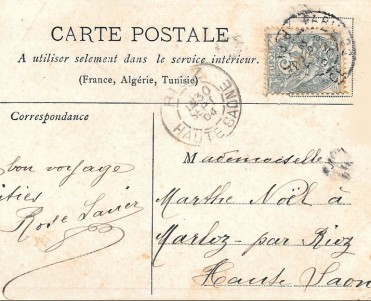 CARTE POSTALE
A utiliser selement dans le service intérieur.
(France, Algérie, Tunisie)
PARIS
5
30
04
HAUTE SAONE
Correspondance
Mademoiselle
bon voyage
Marthe Noël à
Rose
Marloz-par Rioz
Haute Saon